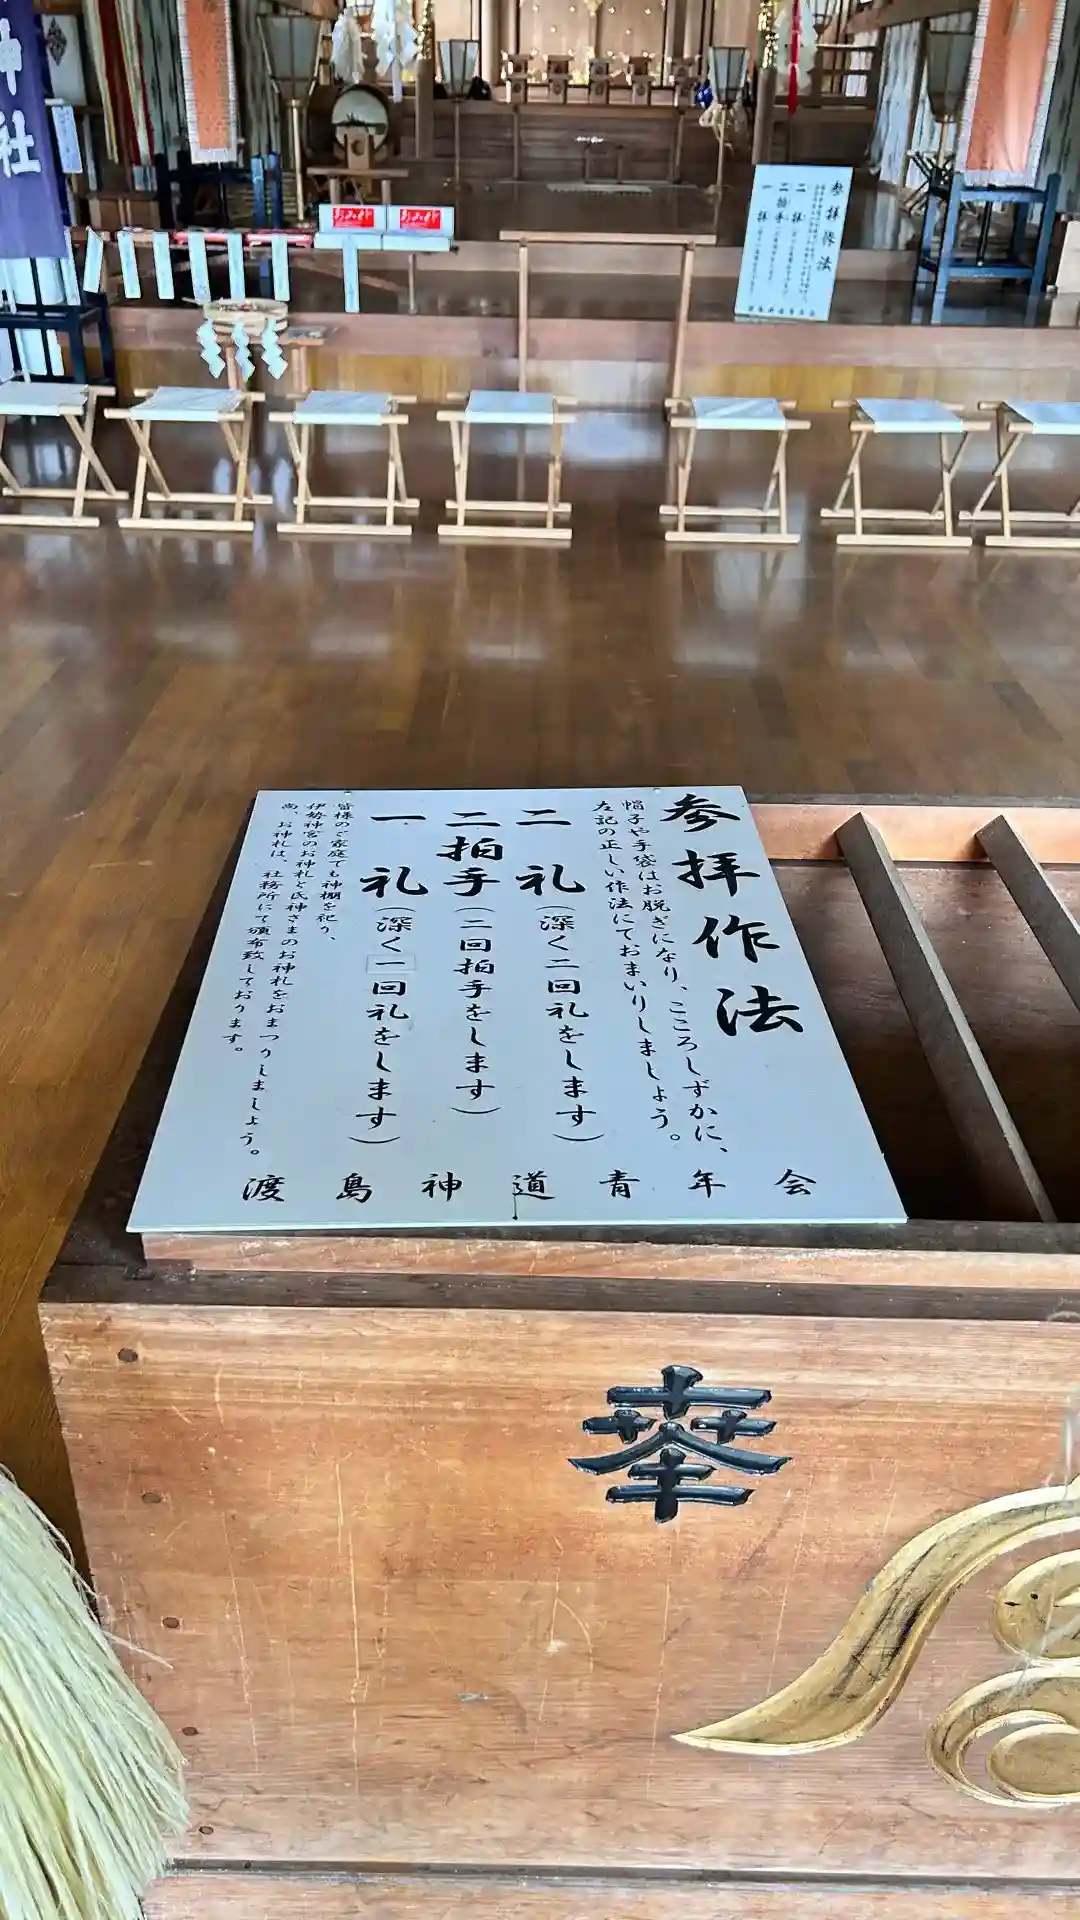 参拝作法
帽子や手袋はお脱ぎになり、こころしずかに、
左記の正しい作法にておまいりしましょう。
二礼(深く二回礼をします)
二拍手(二回拍手をします)
一礼(深く一回礼をします)
皆様のご家庭でも神棚を祀り、
伊勢神宮のお神札と氏神さまのお神札をおまつりしましょう。
尚、お神札は、社務所にて頒布致しております。
渡島神道青年会
奉
神社
おみくじ
おみくじ
参拝作法
二礼
二拍手
一礼